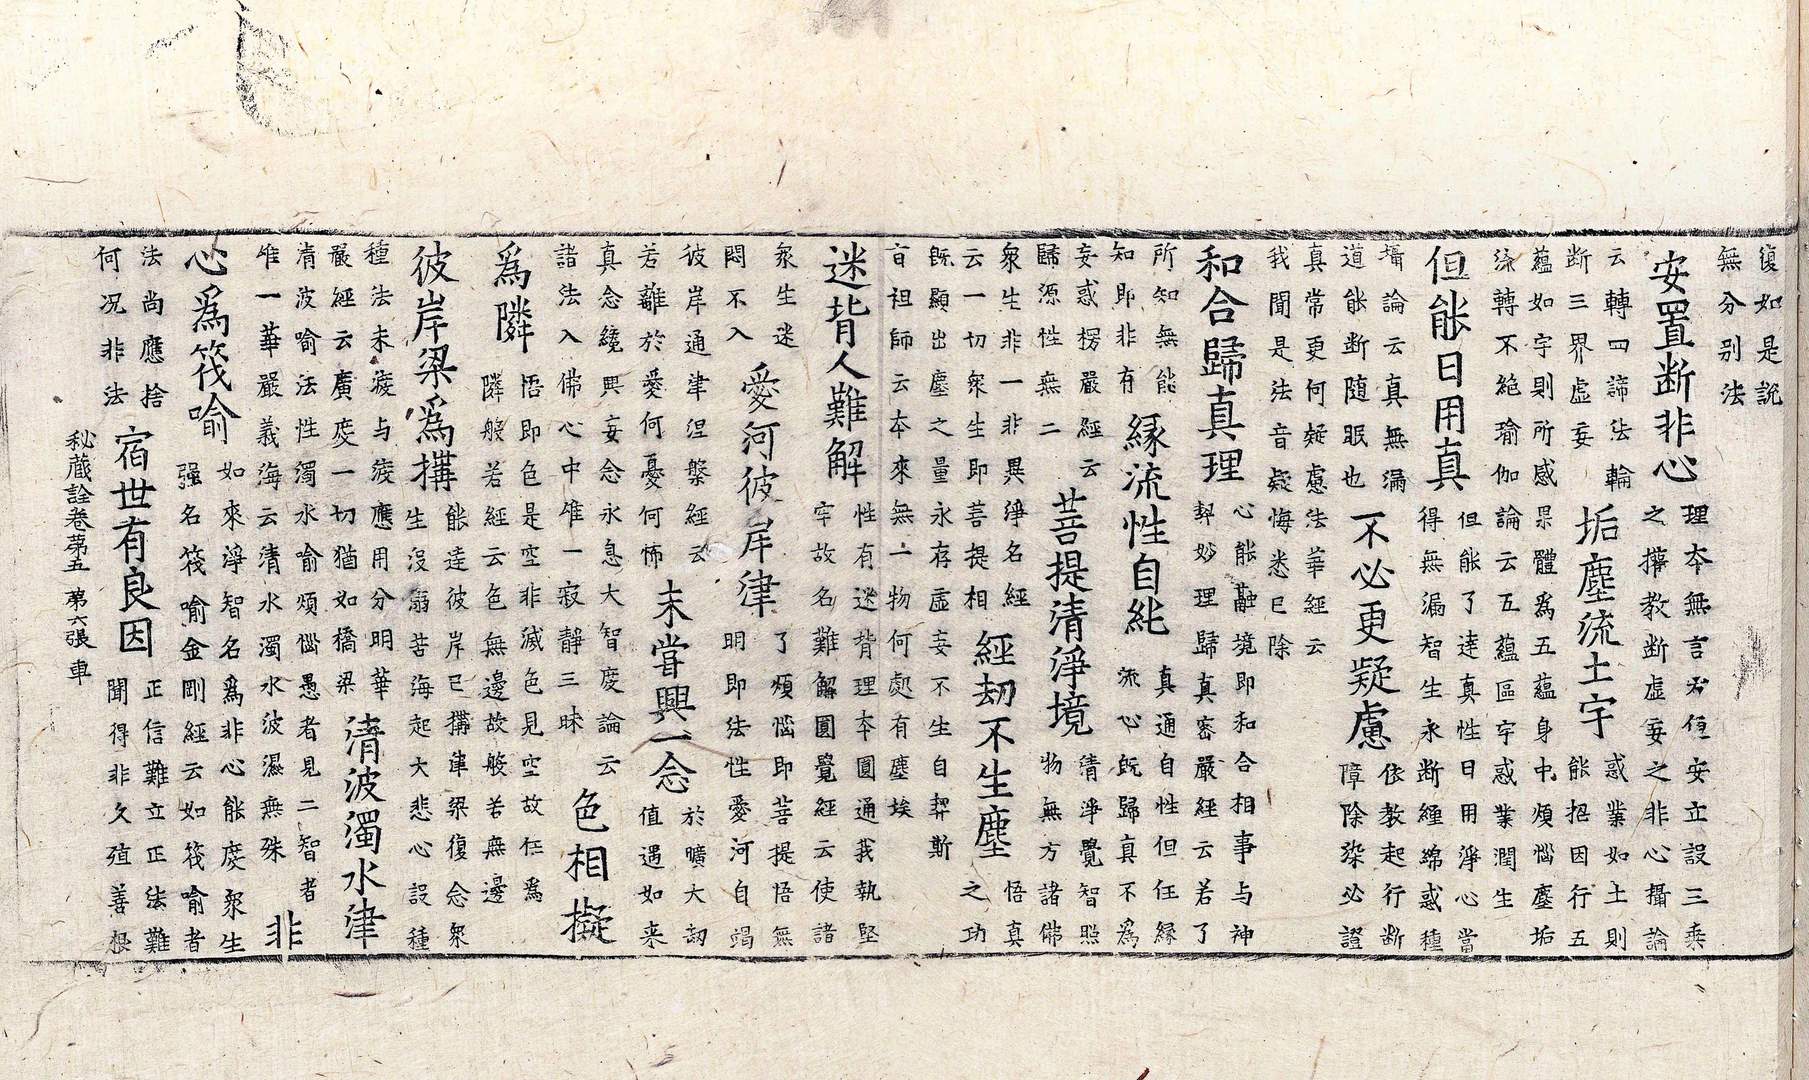 復如是說
無分别法
安置断非心
理本無言不但安立設三乗
之攉教断虚妄之非心攝論
云轉四諦法輪
断三界虚妄
垢塵流土宇
惑業如土則
能招因行五
蘊如宇則所感果體為五蘊身中煩惱塵垢
流轉不絶瑜伽論云五蘊區宇惑業潤生
但能日用真
但能了達真性日用淨心當
得無漏智生永断纏綿惑種
攝論云真無漏
道能断随眠也
不必更疑慮
依教起行断
障除染必證
真常更何疑慮法華經云
我聞是法音疑悔悉已除
和合歸真理
心能融境即和合相事与神
契妙理歸真密嚴經云若了
所知無能
知即非有
縁流性自純
真通自性但任縁
流心既歸真不為
妄惑楞嚴經云
歸源性無二
菩提清淨境
清淨覺智照
物無方諸佛
衆生非一非異淨名經
云一切衆生即菩提相
經劫不生塵
悟真
之功
既顯出塵之量永存虚妄不生自契斯
言祖師云本來無一物何處有塵埃
迷背人難解
性有迷背理本圓通我執堅
牢故名難解圓覺經云使諸
衆生迷
悶不入
愛河彼岸津
了煩惱即菩提悟無
明即法性愛河自竭
彼岸通津涅槃經云
若離於愛何憂何怖
未甞興一念
於曠大劫
值遇如来
真念纔興妄念永息大智度論云
諸法入佛心中唯一寂靜三昧
色相擬
為隣
悟即色是空非滅色見空故任為
隣般若經云色無邊故般若無邊
彼岸梁為搆
能達彼岸已搆津梁復念衆
生没溺苦海起大悲心設種
種法未凝与凝應用分明華
嚴經云廣度一切猶如橋梁
清波濁水津
清波喻法性濁水喻煩惱愚者見二智者
唯一華嚴義海云清水濁水波濕無殊
非
心為筏喻
如來淨智名為非心能度衆生
强名筏喻金剛經云如筏喻者
法尚應捨
何况非法
宿世有良因
正信難立正法難
聞得非久殖善根
秘蔵詮卷苐五 苐六張 車